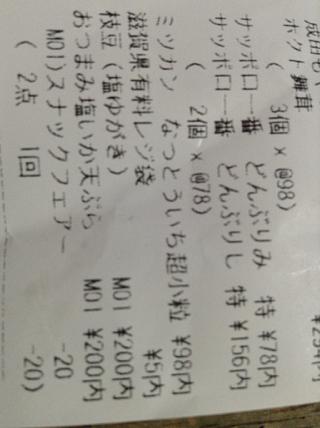 成田も
ホクト舞茸
( 3個 × @98) ¥294内
サッポロ一番 どんぶりみ 特 ¥78内
サッポロ一番 どんぶりし 特 ¥156内
( 2個 × @78)
ミツカン なっとういち超小粒 ¥98内
滋賀県有料レジ袋 ¥5内
枝豆(塩ゆがき) M01 ¥200内
おつまみ塩いか天ぷら M01 ¥200内
M01)スナックフェアー -20
( 2点 1回 -20)